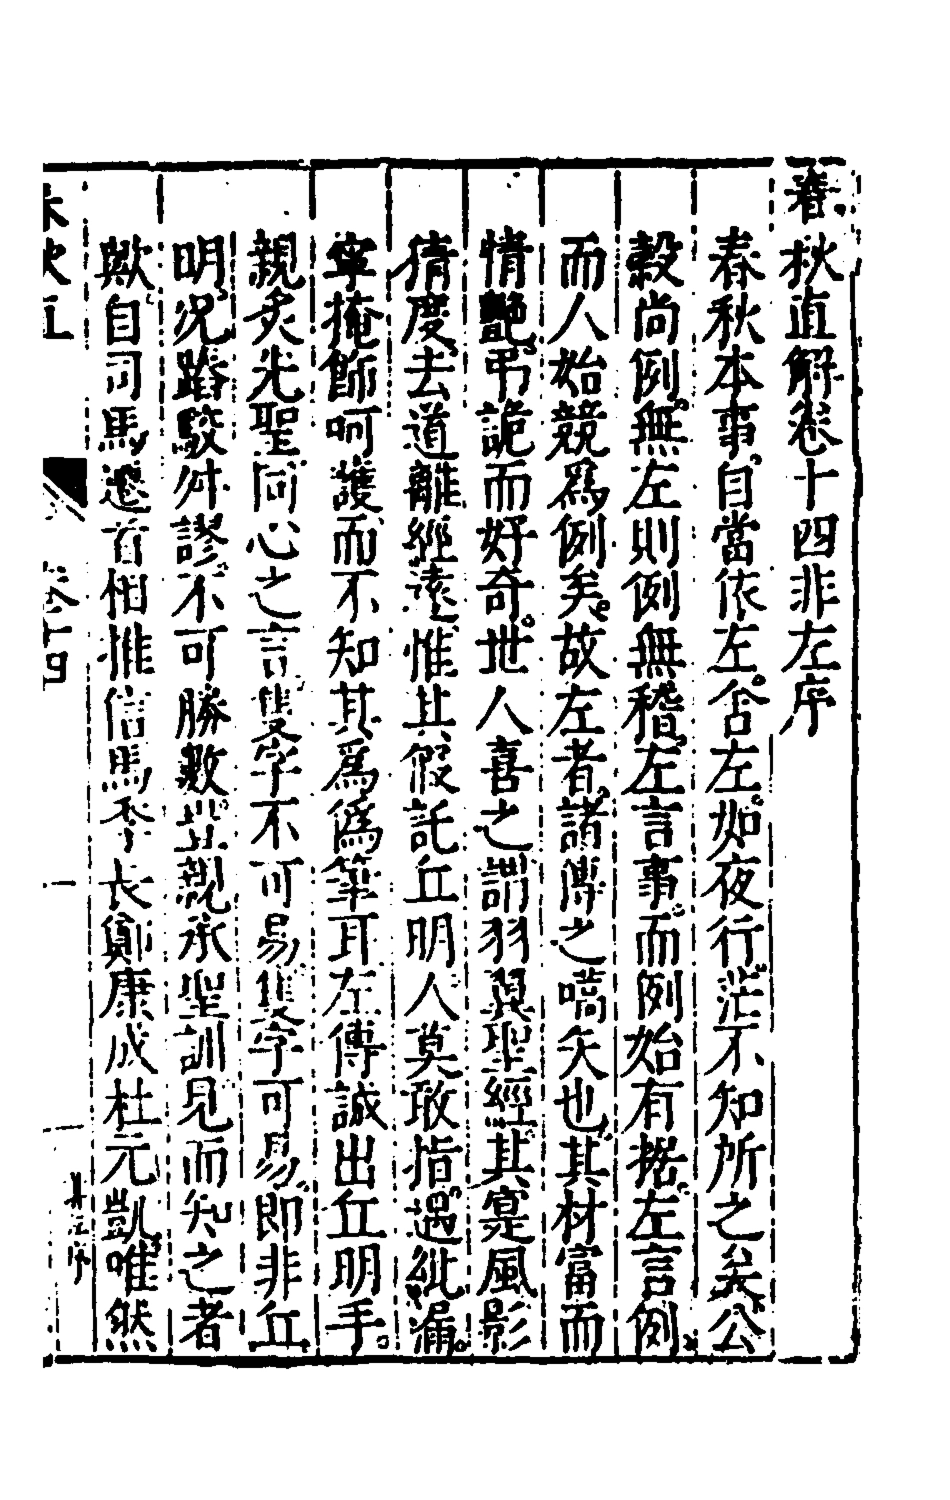 春秋直解卷十四非左序
春秋本事自當依左舍左如夜行茫不知所之矣公
穀尚例無左則例無稽左言事而例始有據左言例
而人始競爲例矣故左者諸傳之嚆矢也其材富而
情豔弔詭而好奇世人喜之謂羽翼聖經其寔風影
猜度去道離經遠惟其假託丘明人莫敢指遇紕漏
寧掩飾呵護而不知其爲僞筆耳左傳誠出丘明手
親炙先聖同心之言隻字不可易隻字可易即非丘
明況踳駮舛謬不可勝數豈親承聖訓見而知之者
歟自司馬遷首相推信馬季長鄭康成杜元凱唯然
卷十四
一